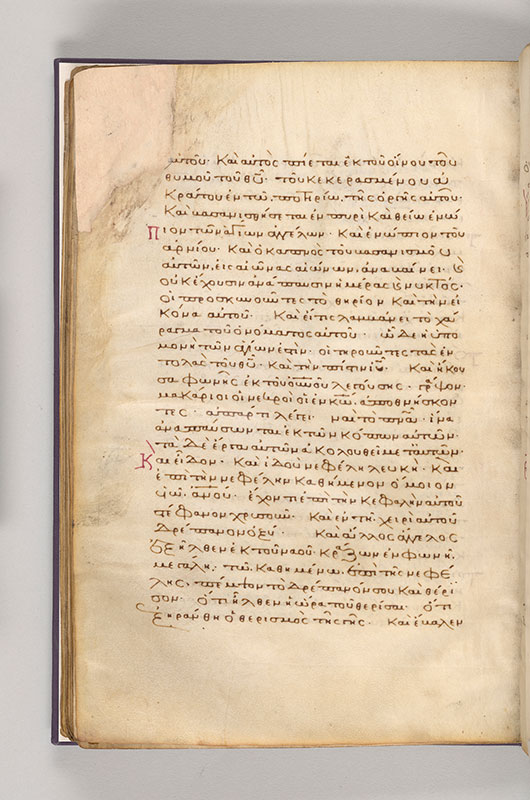 αὐτοῦ· Καὶ αὐτὸς πίεται ἐκ τοῦ οἴνου τοῦ
θυμοῦ τοῦ θ̅υ̅· τοῦ κεκερασμένου ἀ
κράτου ἐν τῶ ποτηρίω τῆς ὀργῆς αὐτοῦ·
Καὶ βασανισθήσεται ἐν πυρὶ καὶ θείω ἐνώ
πιον τῶν ἁγίων ἀγγέλων· Καὶ ἐνώπιον τοῦ
ἀρνίου· Καὶ ὁ καπνὸς τοῦ βασανισμοῦ
αὐτῶν, εἰς αἰῶνας αἰώνων, ἀναβαίνει·
οὐκ ἔχουσιν ἀνάπαυσιν ἡμέρας καὶ νυκτός·
οἱ προσκυνοῦντες τὸ θηρίον καὶ τὴν εἰ
κόνα αὐτοῦ· Καὶ εἴ τις λαμβάνει τὸ χά
ραγμα τοῦ ὀνόματος αὐτοῦ· ὧδε ἡ ὑπο
μονὴ τῶν ἁγίων ἐστὶν· οἱ τηροῦντες τὰς ἐν
τολὰς τοῦ θ̅υ̅· Καὶ τὴν πίστιν ι̅υ̅· Καὶ ἤκου
σα φωνῆς ἐκ τοῦ οὐνου λεγούσης· γράψον·
μακάριοι οἱ νεκροὶ οἱ ἐν κ̅ω̅, ἀποθνήσκον
τες· ἀπάρτι λέγει ναὶ τὸ π̅ν̅α̅· ἵνα
ἀναπαύσωνται ἐκ τῶν κόπων αὐτῶν·
τὰ δὲ ἔργα αὐτῶν ἀκολουθεῖ μετ᾽ αὐτῶν·
Καὶ εἶδον· Καὶ ἰδοὺ νεφέλη λευκή· Καὶ
ἐπὶ τὴν νεφέλην καθήμενον ὅμοιον
υ̅ω̅ α̅ν̅ο̅υ̅· ἔχοντι ἐπὶ τὴν κεφαλὴν αὐτοῦ
στέφανον χρυσοῦν· Καὶ ἐν τῆ χειρὶ αὐτοῦ
δρέπανον ὀξύ· Καὶ ἄλλος ἄγγελος
ἐξῆλθεν ἐκ τοῦ ναοῦ κράζων ἐν φωνῆ
μεγάλη· τῶ καθημένω, ἐπὶ τῆς νεφέ
λης, πέμψον τὸ δρέπανόν σου καὶ θέρι
σον· ὅτι ἦλθεν ἡ ὥρα τοῦ θερίσαι· ὅτι
ἐξηράνθη ὁ θερισμὸς τῆς γῆς· Καὶ ἔβαλεν